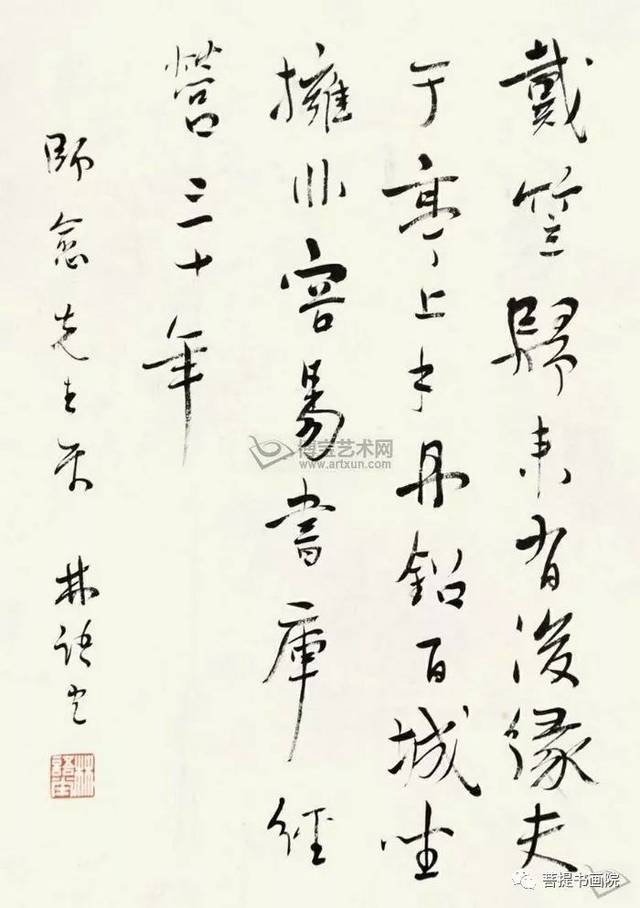 戴笠歸來有後緣夫
于亭上手丹鉛百城坐
擁非容易書庫經
營三十年
師愈先生 林語堂
林語堂
博宝艺术网
www.artxun.com
菩提书画院